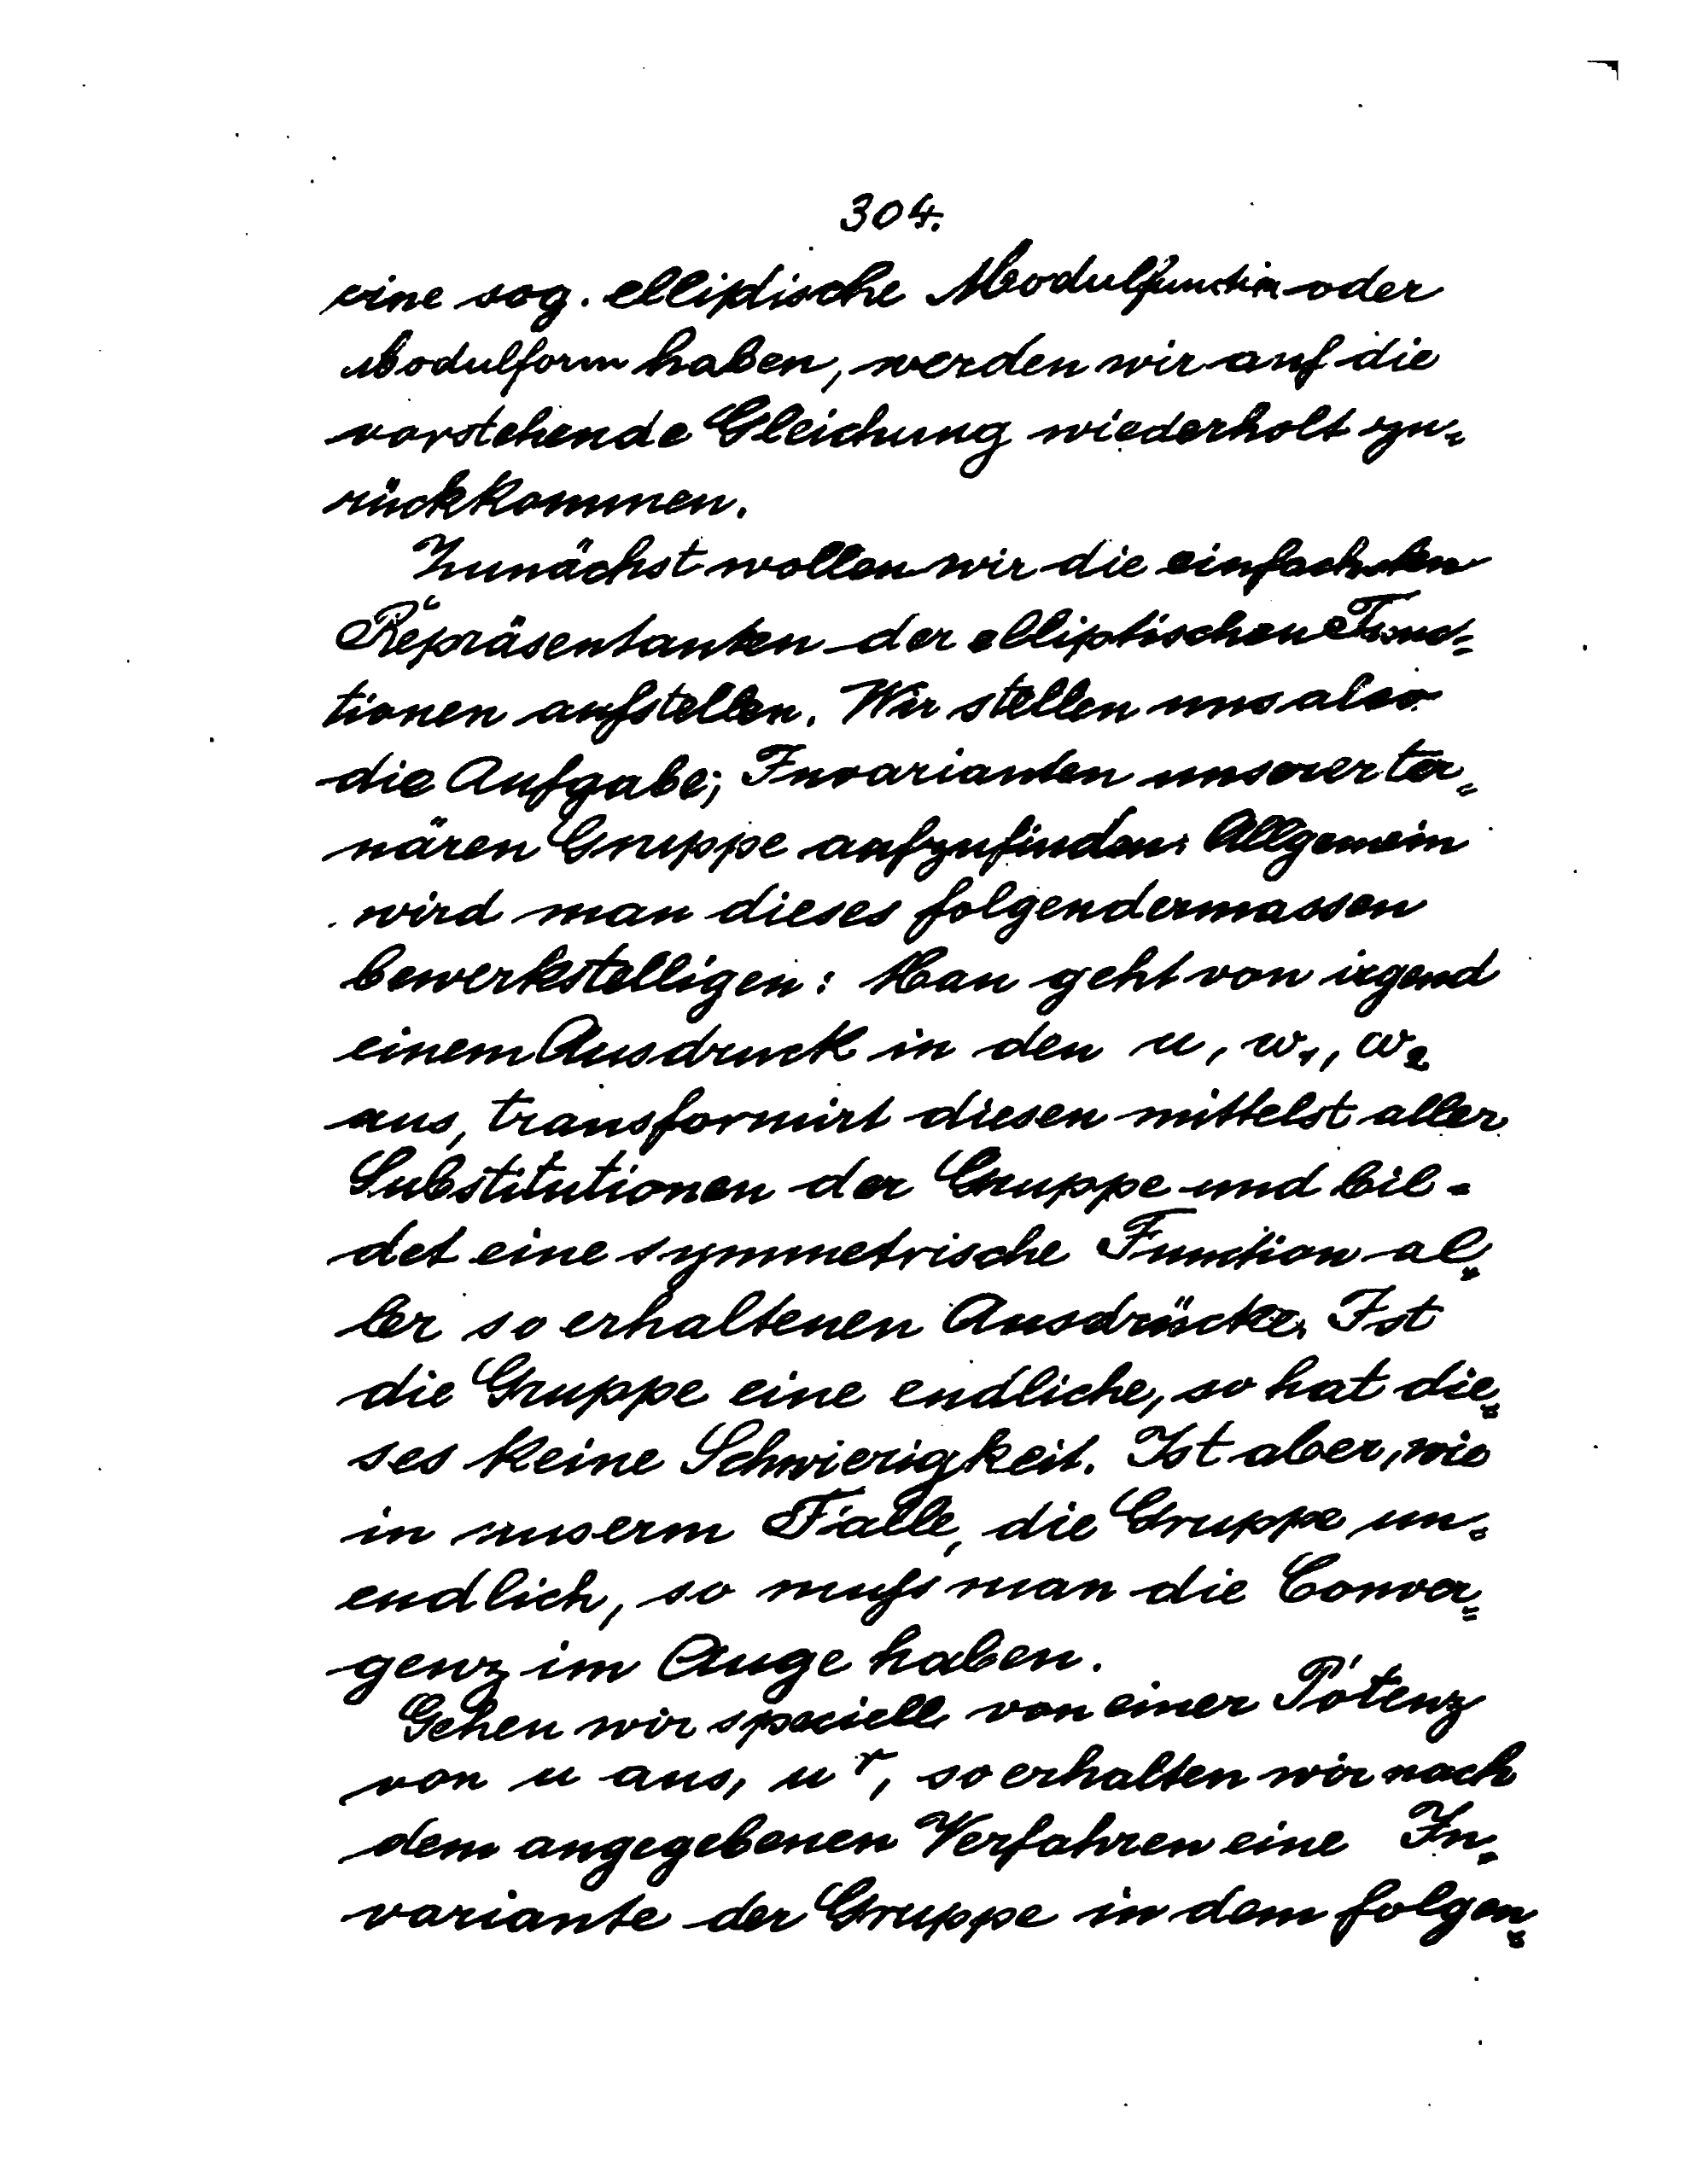 304.
eine sog. elliptische Modulfunction oder
Modulform haben, werden wir auf die
vorstehende Gleichung wiederholt zu=
rückkommen.
Zunächst wollen wir die einfachsten
Repräsentanten der elliptischen Func=
tionen aufstellen. Wir stellen uns also
die Aufgabe; Invarianten unserer ter=
nären Gruppe aufzufinden. Allgemein
wird man dieses folgendermassen
bewerkstelligen: Man geht von irgend
einem Ausdruck in den u, ω₁, ω₂
aus, transformirt diesen mittelst aller
Substitutionen der Gruppe und bil=
det eine symmetrische Function al=
ler so erhaltenen Ausdrücke. Ist
die Gruppe eine endliche, so hat die=
ses keine Schwierigkeit. Ist aber, wie
in unserm Falle, die Gruppe un=
endlich, so muß man die Conver=
genz im Auge haben.
Gehen wir speciell von einer Potenz
von u aus, uʳ, so erhalten wir nach
dem angegebenen Verfahren eine In=
variante der Gruppe in dem folgen=